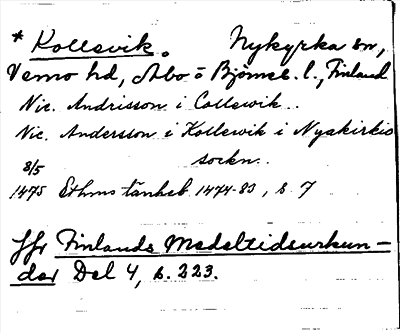 * Kollsvik. Nykyrka sn,
Vemo hd, Åbo o Björneb. l., Finland
Nic. Andrisson i Collewik..
Nic. Andersson i Kollewik i Nyakirkio
sockn..
8/5
1475 Ethms tänkeb. 1474-83, s. 7
Jfr Finlands Medeltidsurkun-
der Del 4, s. 223.